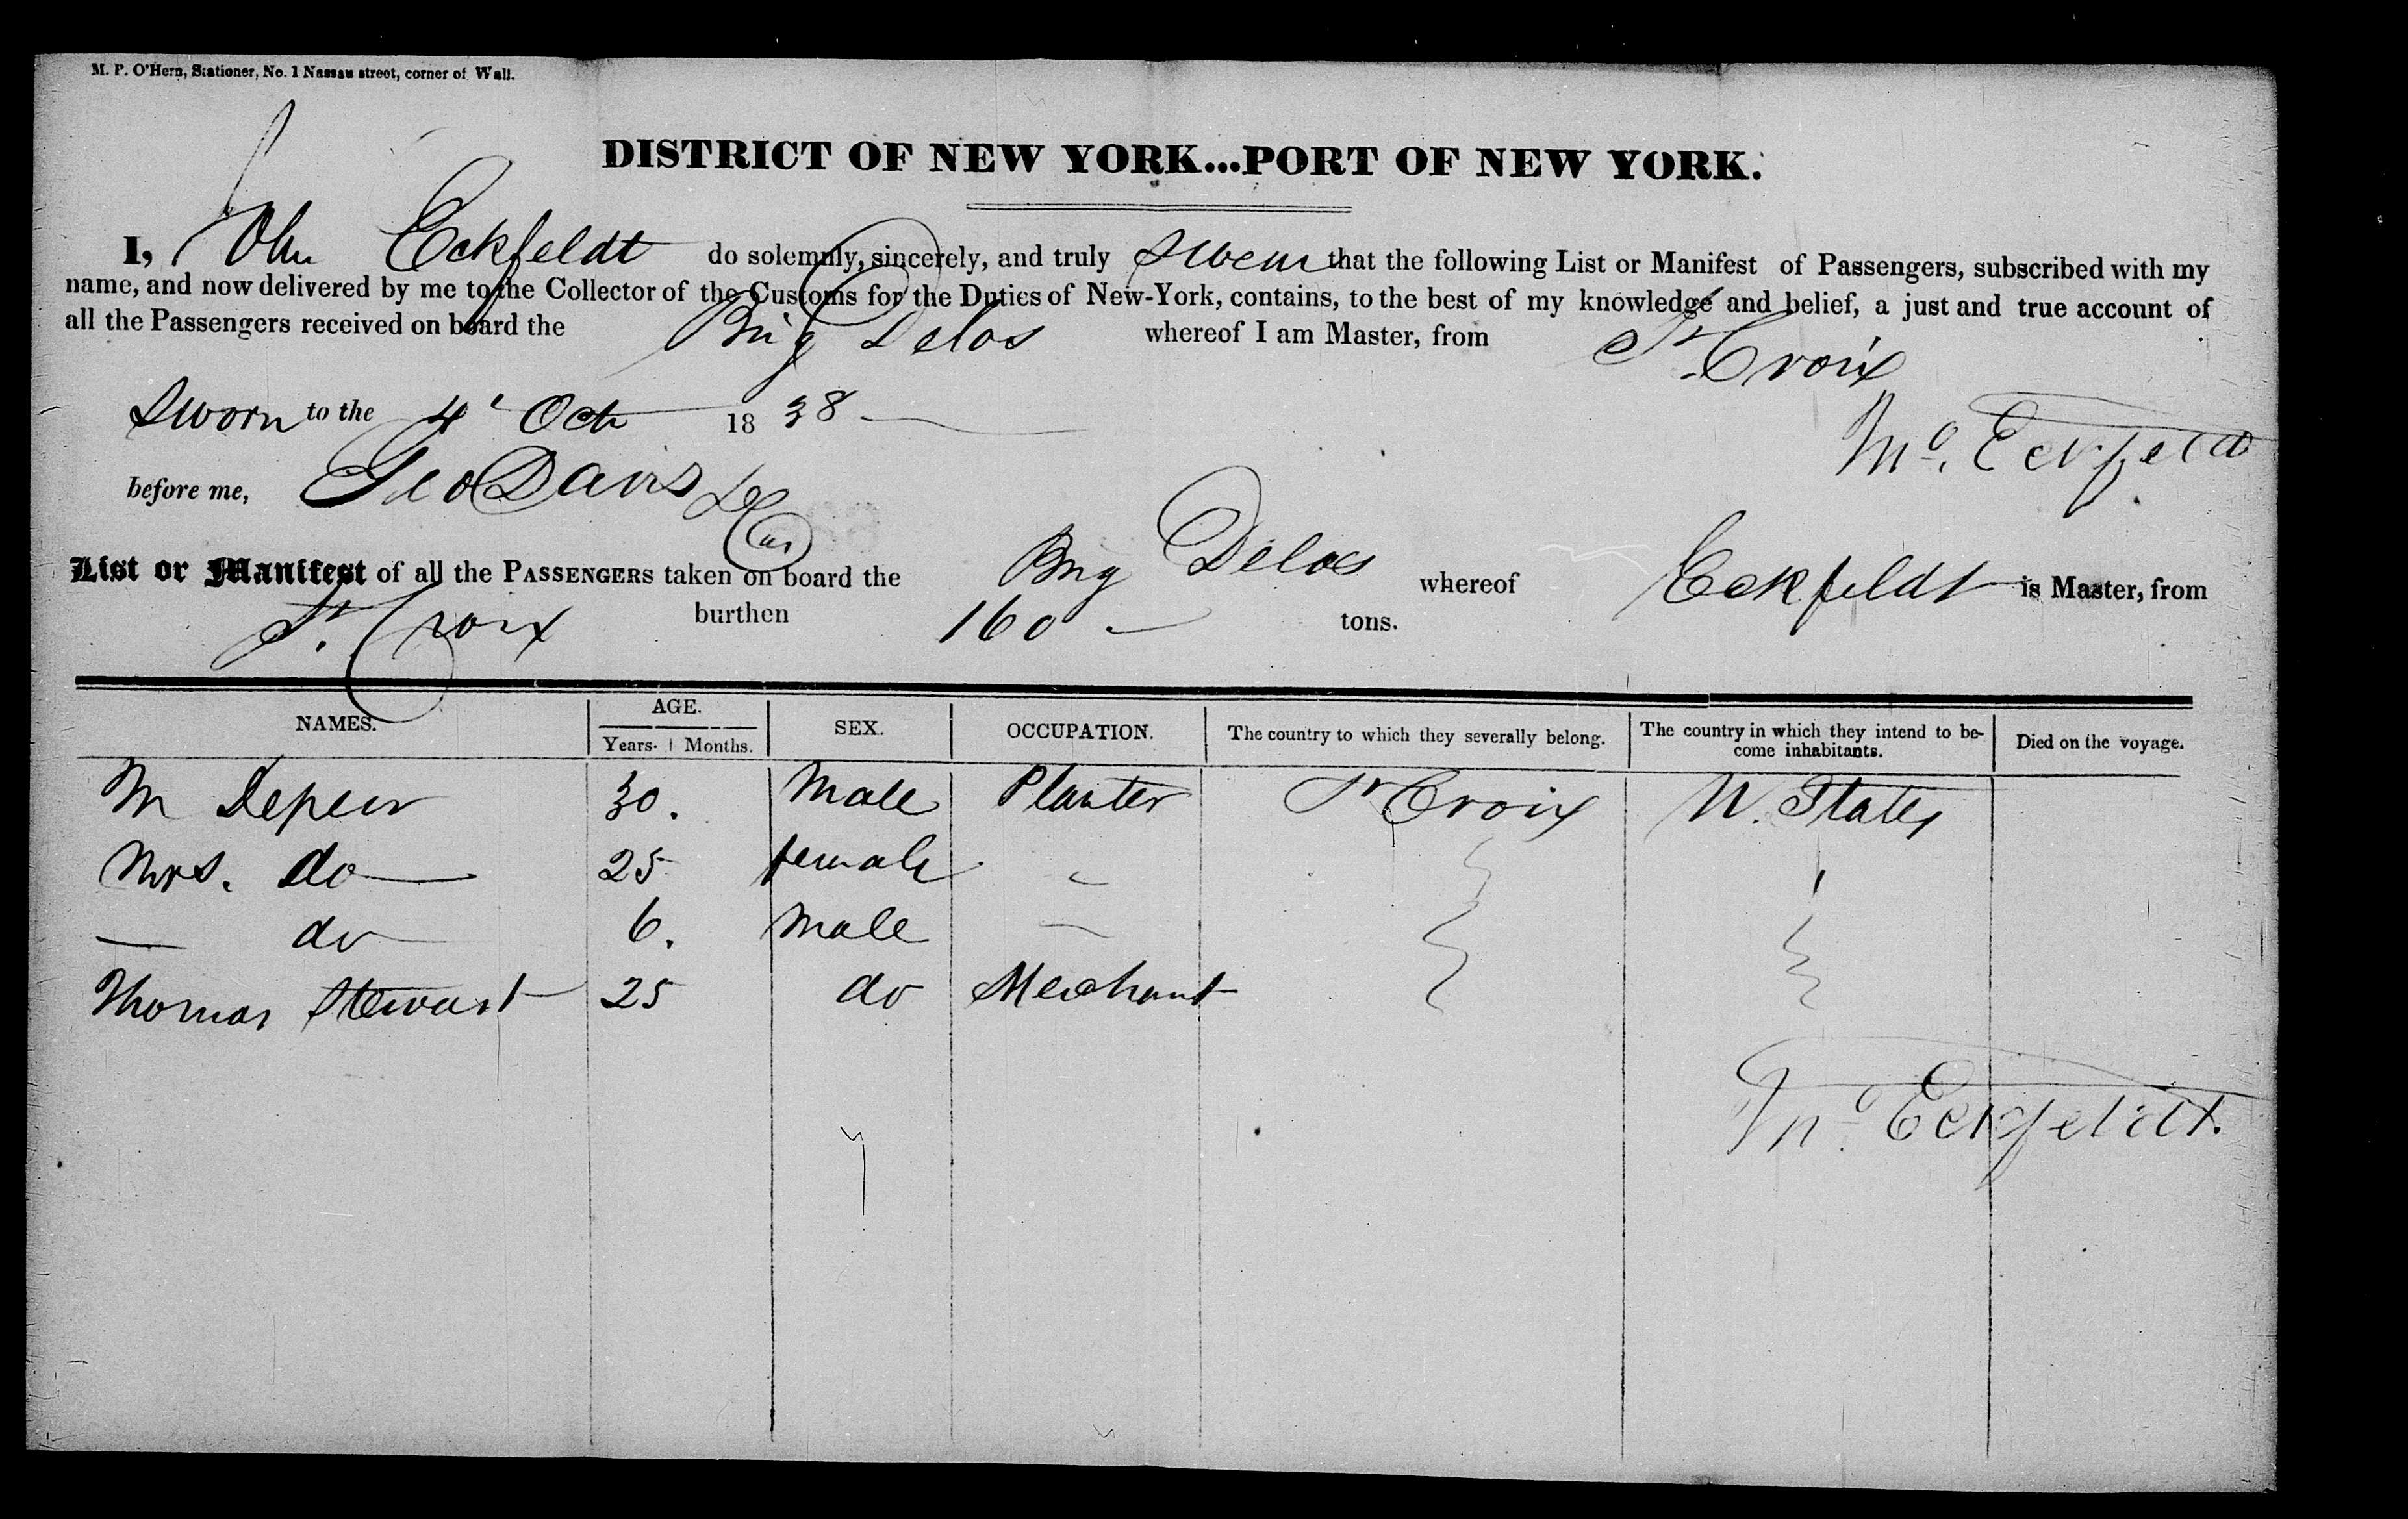 M. P. O'Hern, Stationer, No. 1 Nassau street, corner of Wall.
DISTRICT OF NEW YORK...PORT OF NEW YORK.
I, John Eckfeldt do solemnly, sincerely, and truly swear that the following List or Manifest of Passengers, subscribed with my
name, and now delivered by me to the Collector of the Customs for the Duties of New-York, contains, to the best of my knowledge and belief, a just and true account of
all the Passengers received on board the Brig Delos whereof I am Master, from St Croix
Sworn to the 4 Oct 1838
Jno. Eckfeldt
before me, Geo Davis
List or Manifest of all the PASSENGERS taken on board the Brig Delos whereof Eckfeldt is Master, from
St. Croix burthen 160 tons.
NAMES. AGE. SEX. OCCUPATION. The country to which they severally belong. The country in which they intend to be- Died on the voyage.
Years. Months. come inhabitants.
M 30. Male Planter St Croix U. States
Mrs. do 25 female
— do 6. Male
Thomas Stewart 25 do Merchant
Jno. Eckfeldt.